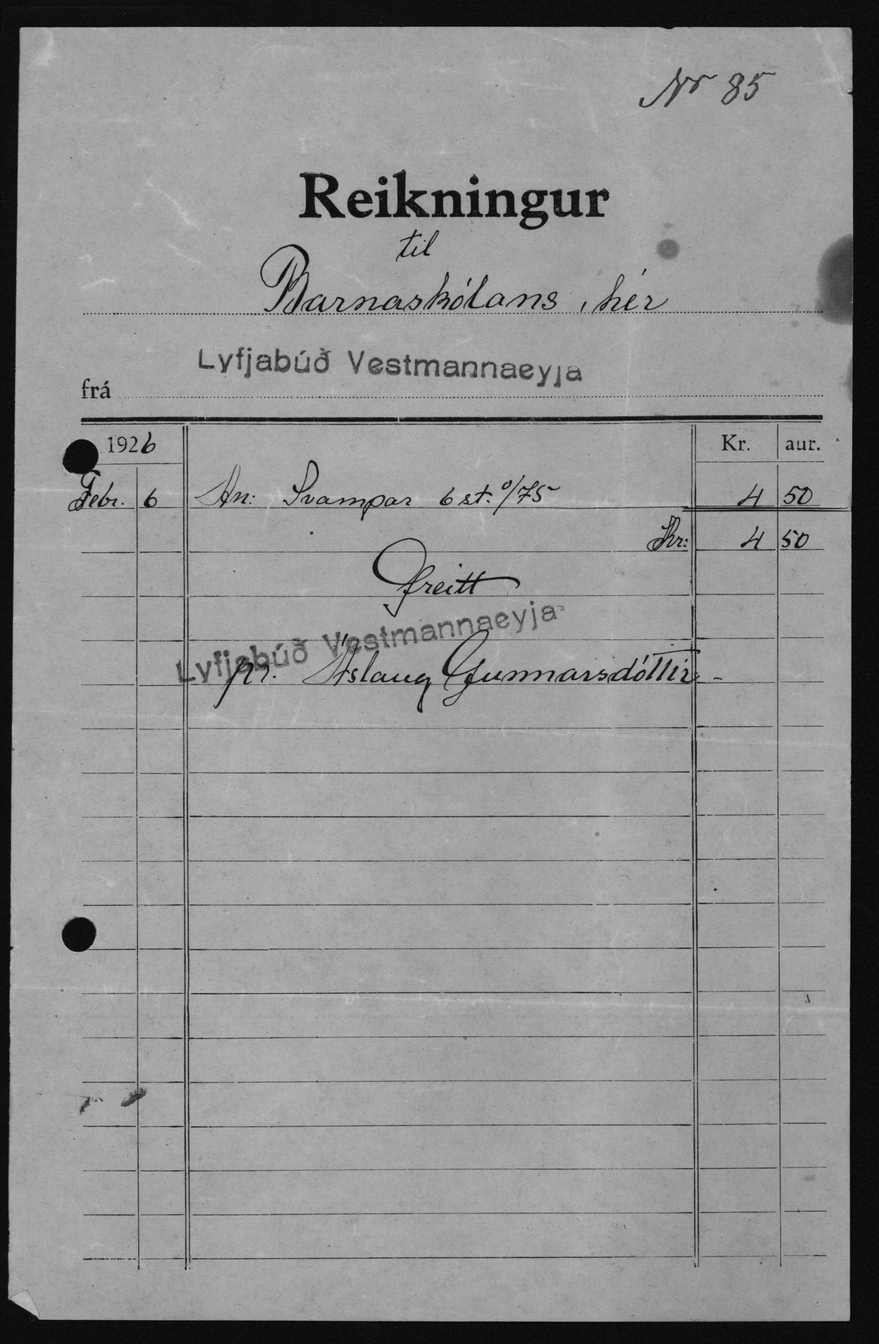 Nr 85
Reikningur
til
Barnaskólans, hér
Lyfjabúð Vestmannaeyja
frá
1926 Kr. aur.
Febr. 6 An: Svampar 6 st. 0/75 4 50
Kr: 4 50
Greitt
Lyfjabúð Vestmannaeyja
pr. Áslaug Gunnarsdóttir -